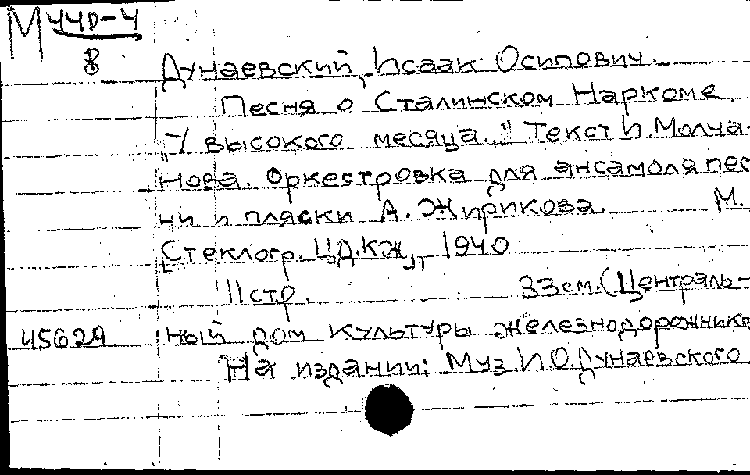 М 440-4
8
Дунаевский, Исаак Осипович.
Песня о Сталинском Наркоме
"У высокого месяца.." Текст И. Молча-
нова. Оркестровка для ансамбля пес-
ни и пляски А. Жирикова. М.
Стеклогр. ЦДКЖ, 1940
11 стр. 33 см. (Централь-
45629 ный дом культуры железнодорожнико
На издании: Муз. И. О. Дунаевского